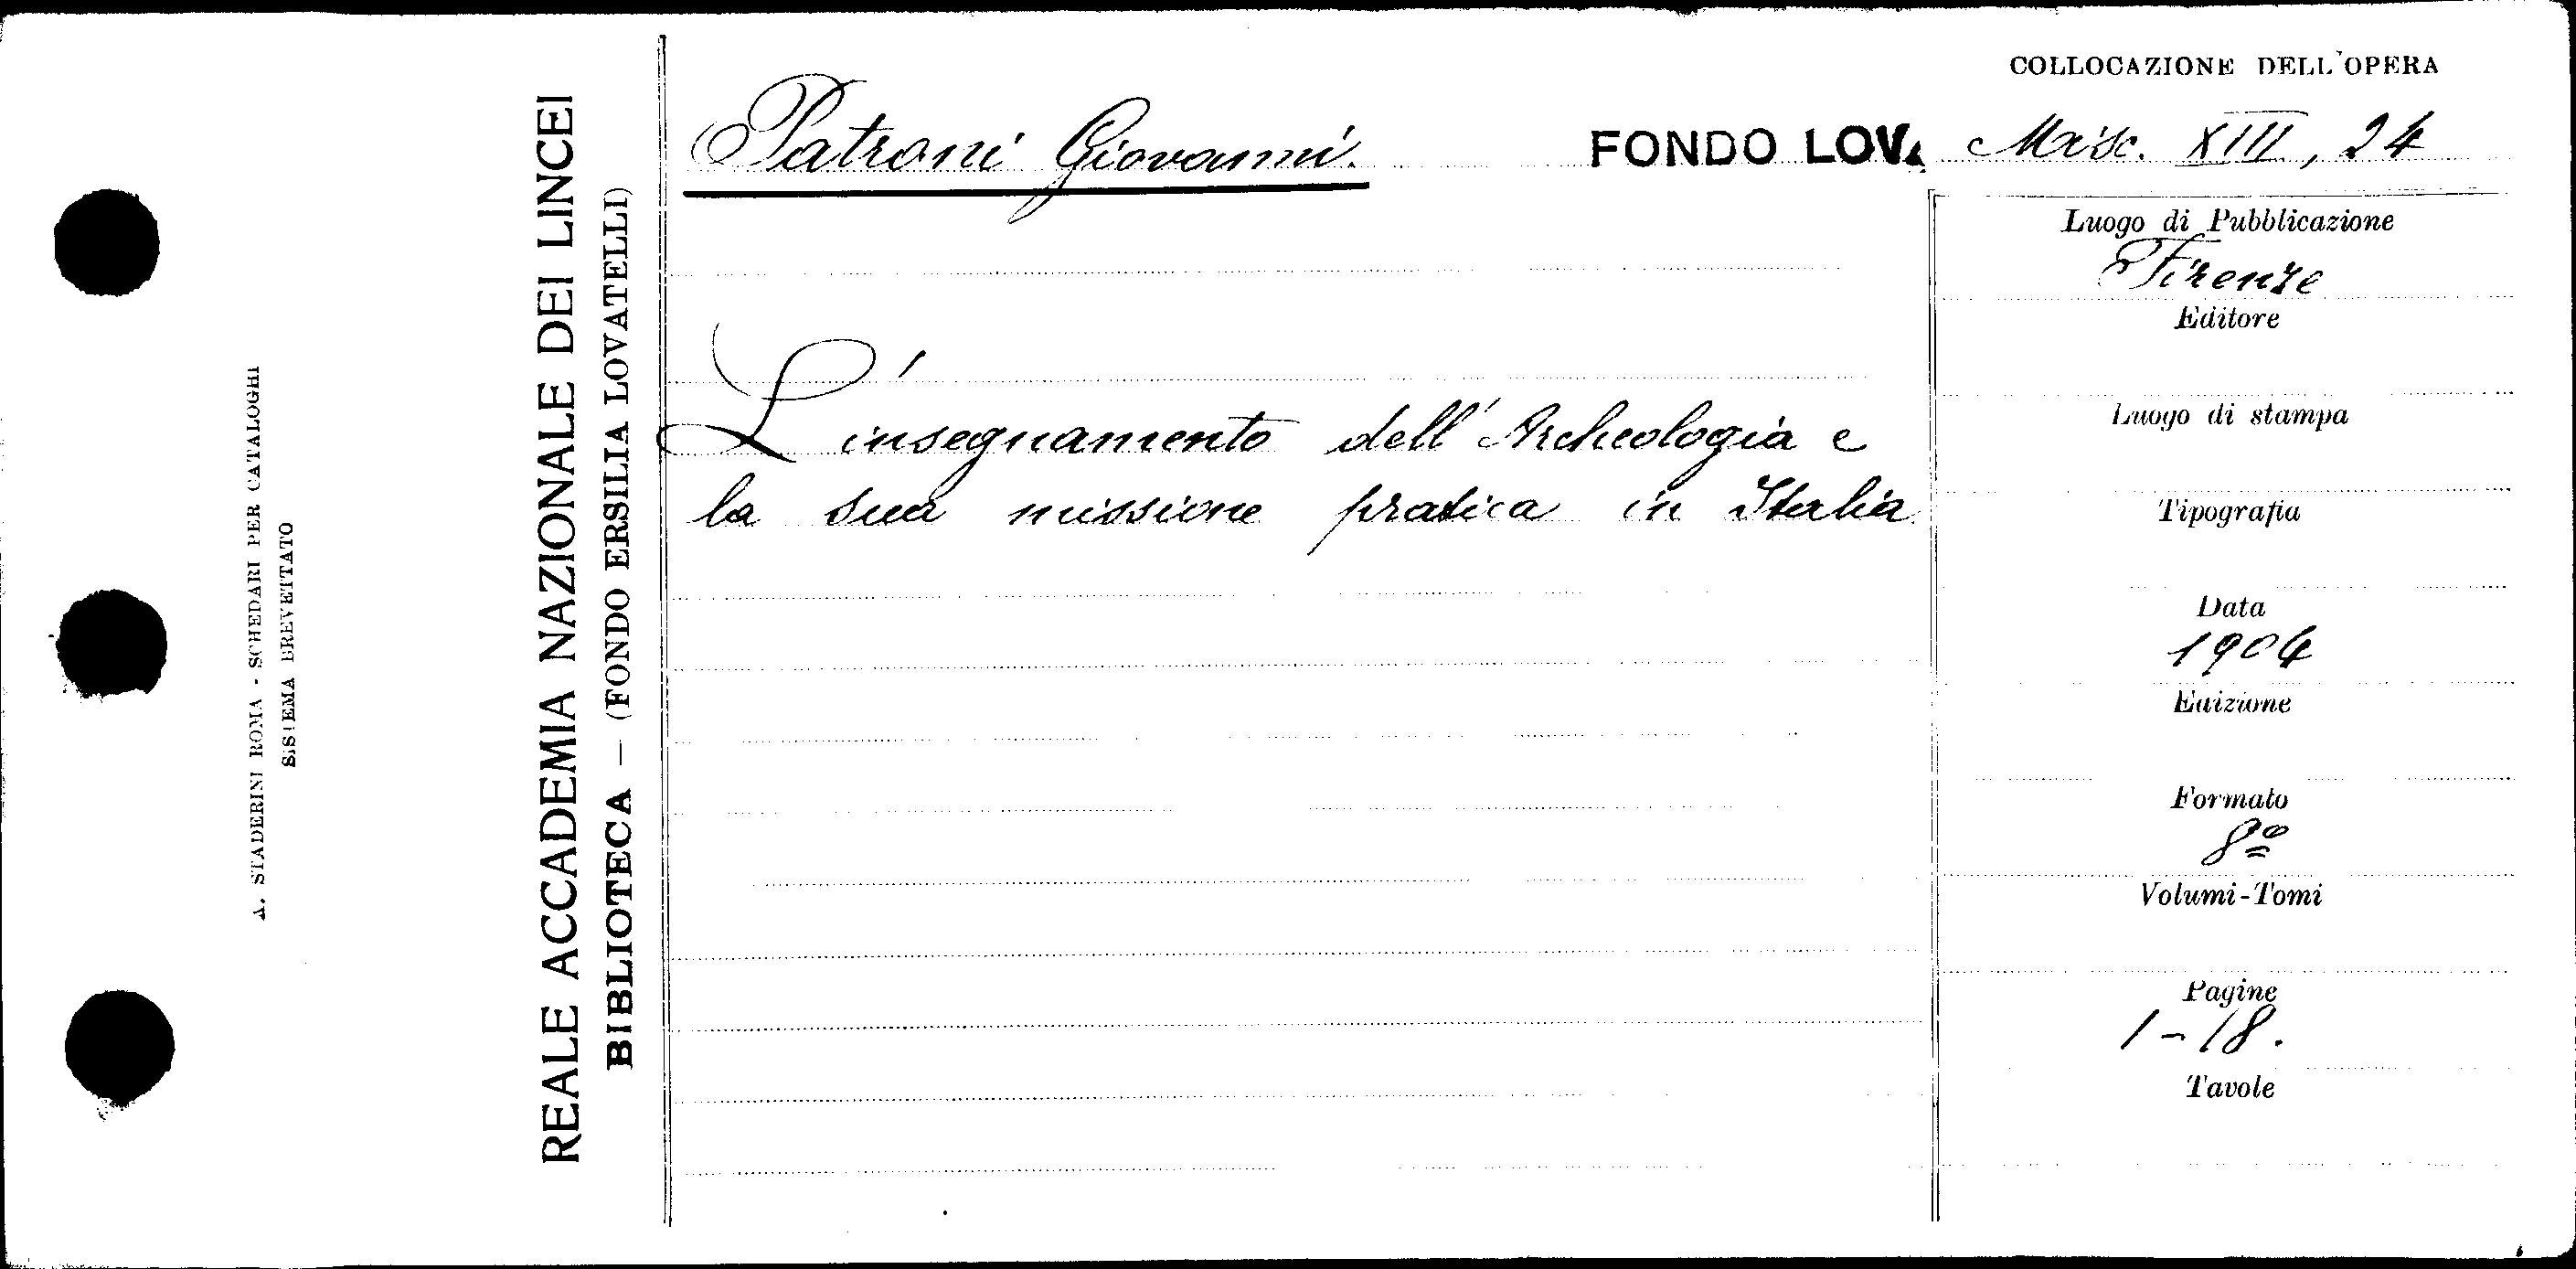 A. STADERINI ROMA - SCHEDARI PER CATALOGHI
SISTEMA BREVETTATO
REALE ACCADEMIA NAZIONALE DEI LINCEI
BIBLIOTECA — (FONDO ERSILIA LOVATELLI)
Patroni Giovanni.
L'insegnamento dell'Archeologia e
la sua missione pratica in Italia
COLLOCAZIONE DELL'OPERA
FONDO LOV. Misc. XIII, 24
Luogo di Pubblicazione
Firenze
Editore
Luogo di stampa
Tipografia
Data
1904
Edizione
Formato
8º
Volumi-Tomi
Pagine
1-18.
Tavole